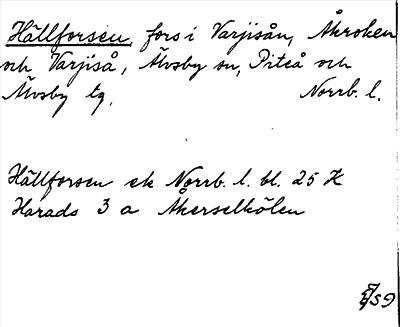 Hällforsen, fors i Varjisån, Åkroken
och Varjiså, Älvsby sn, Piteå och
Älvsby tg. Norrb. l.
Hällforsen ek Norrb. l. bl. 25 K
Harads 3 a Akkerselkölen